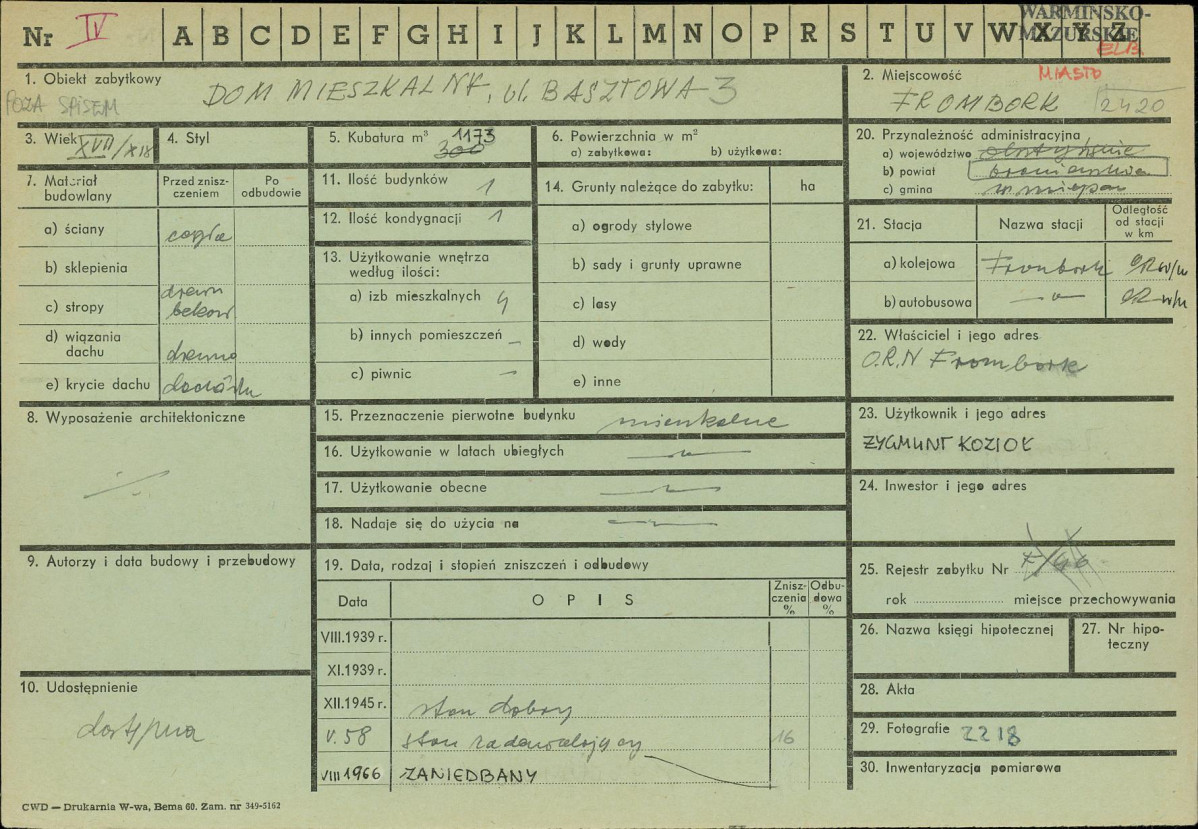 Nr IV A B C D E F G H I J K L M N O P R S T U V W X Y Z
WARMIŃSKO-
MAZURSKIE
ELB.
MIASTO
1. Obiekt zabytkowy
DOM MIESZKALNY, ul. BASZTOWA 3
POZA SPISEM
2. Miejscowość
FROMBORK 2420
3. Wiek XVII/XIX
4. Styl
5. Kubatura m³ 1173
300
6. Powierzchnia w m²
a) zabytkowa: b) użytkowa:
7. Materiał budowlany
Przed zniszczeniem
Po odbudowie
a) ściany cegła
b) sklepienia
c) stropy drewn belkow
d) wiązania dachu drewno
e) krycie dachu dachówka
8. Wyposażenie architektoniczne
9. Autorzy i data budowy i przebudowy
10. Udostępnienie
dostępna
11. Ilość budynków 1
12. Ilość kondygnacji 1
13. Użytkowanie wnętrza według ilości:
a) izb mieszkalnych 4
b) innych pomieszczeń –
c) piwnic –
14. Grunty należące do zabytku: ha
a) ogrody stylowe
b) sady i grunty uprawne
c) lasy
d) wody
e) inne
15. Przeznaczenie pierwotne budynku mieszkalne
16. Użytkowanie w latach ubiegłych –"–
17. Użytkowanie obecne –"–
18. Nadaje się do użycia na –"–
19. Data, rodzaj i stopień zniszczeń i odbudowy
Data OPIS Zniszczenia % Odbudowa %
VIII.1939 r.
XI.1939 r.
XII.1945 r. stan dobry
V. 58 stan zadowalający 16
VIII 1966 ZANIEDBANY
20. Przynależność administracyjna
a) województwo olsztyńskie
b) powiat braniewski
c) gmina
21. Stacja Nazwa stacji Odległość od stacji w km
a) kolejowa Frombork
b) autobusowa –"–
22. Właściciel i jego adres
O.R.N Frombork
23. Użytkownik i jego adres
ZYGMUNT KOZIOŁ
24. Inwestor i jego adres
25. Rejestr zabytku Nr
rok miejsce przechowywania
26. Nazwa księgi hipotecznej
27. Nr hipoteczny
28. Akta
29. Fotografie 2218
30. Inwentaryzacja pomiarowa
CWD — Drukarnia W-wa, Bema 60. Zam. nr 349-5162